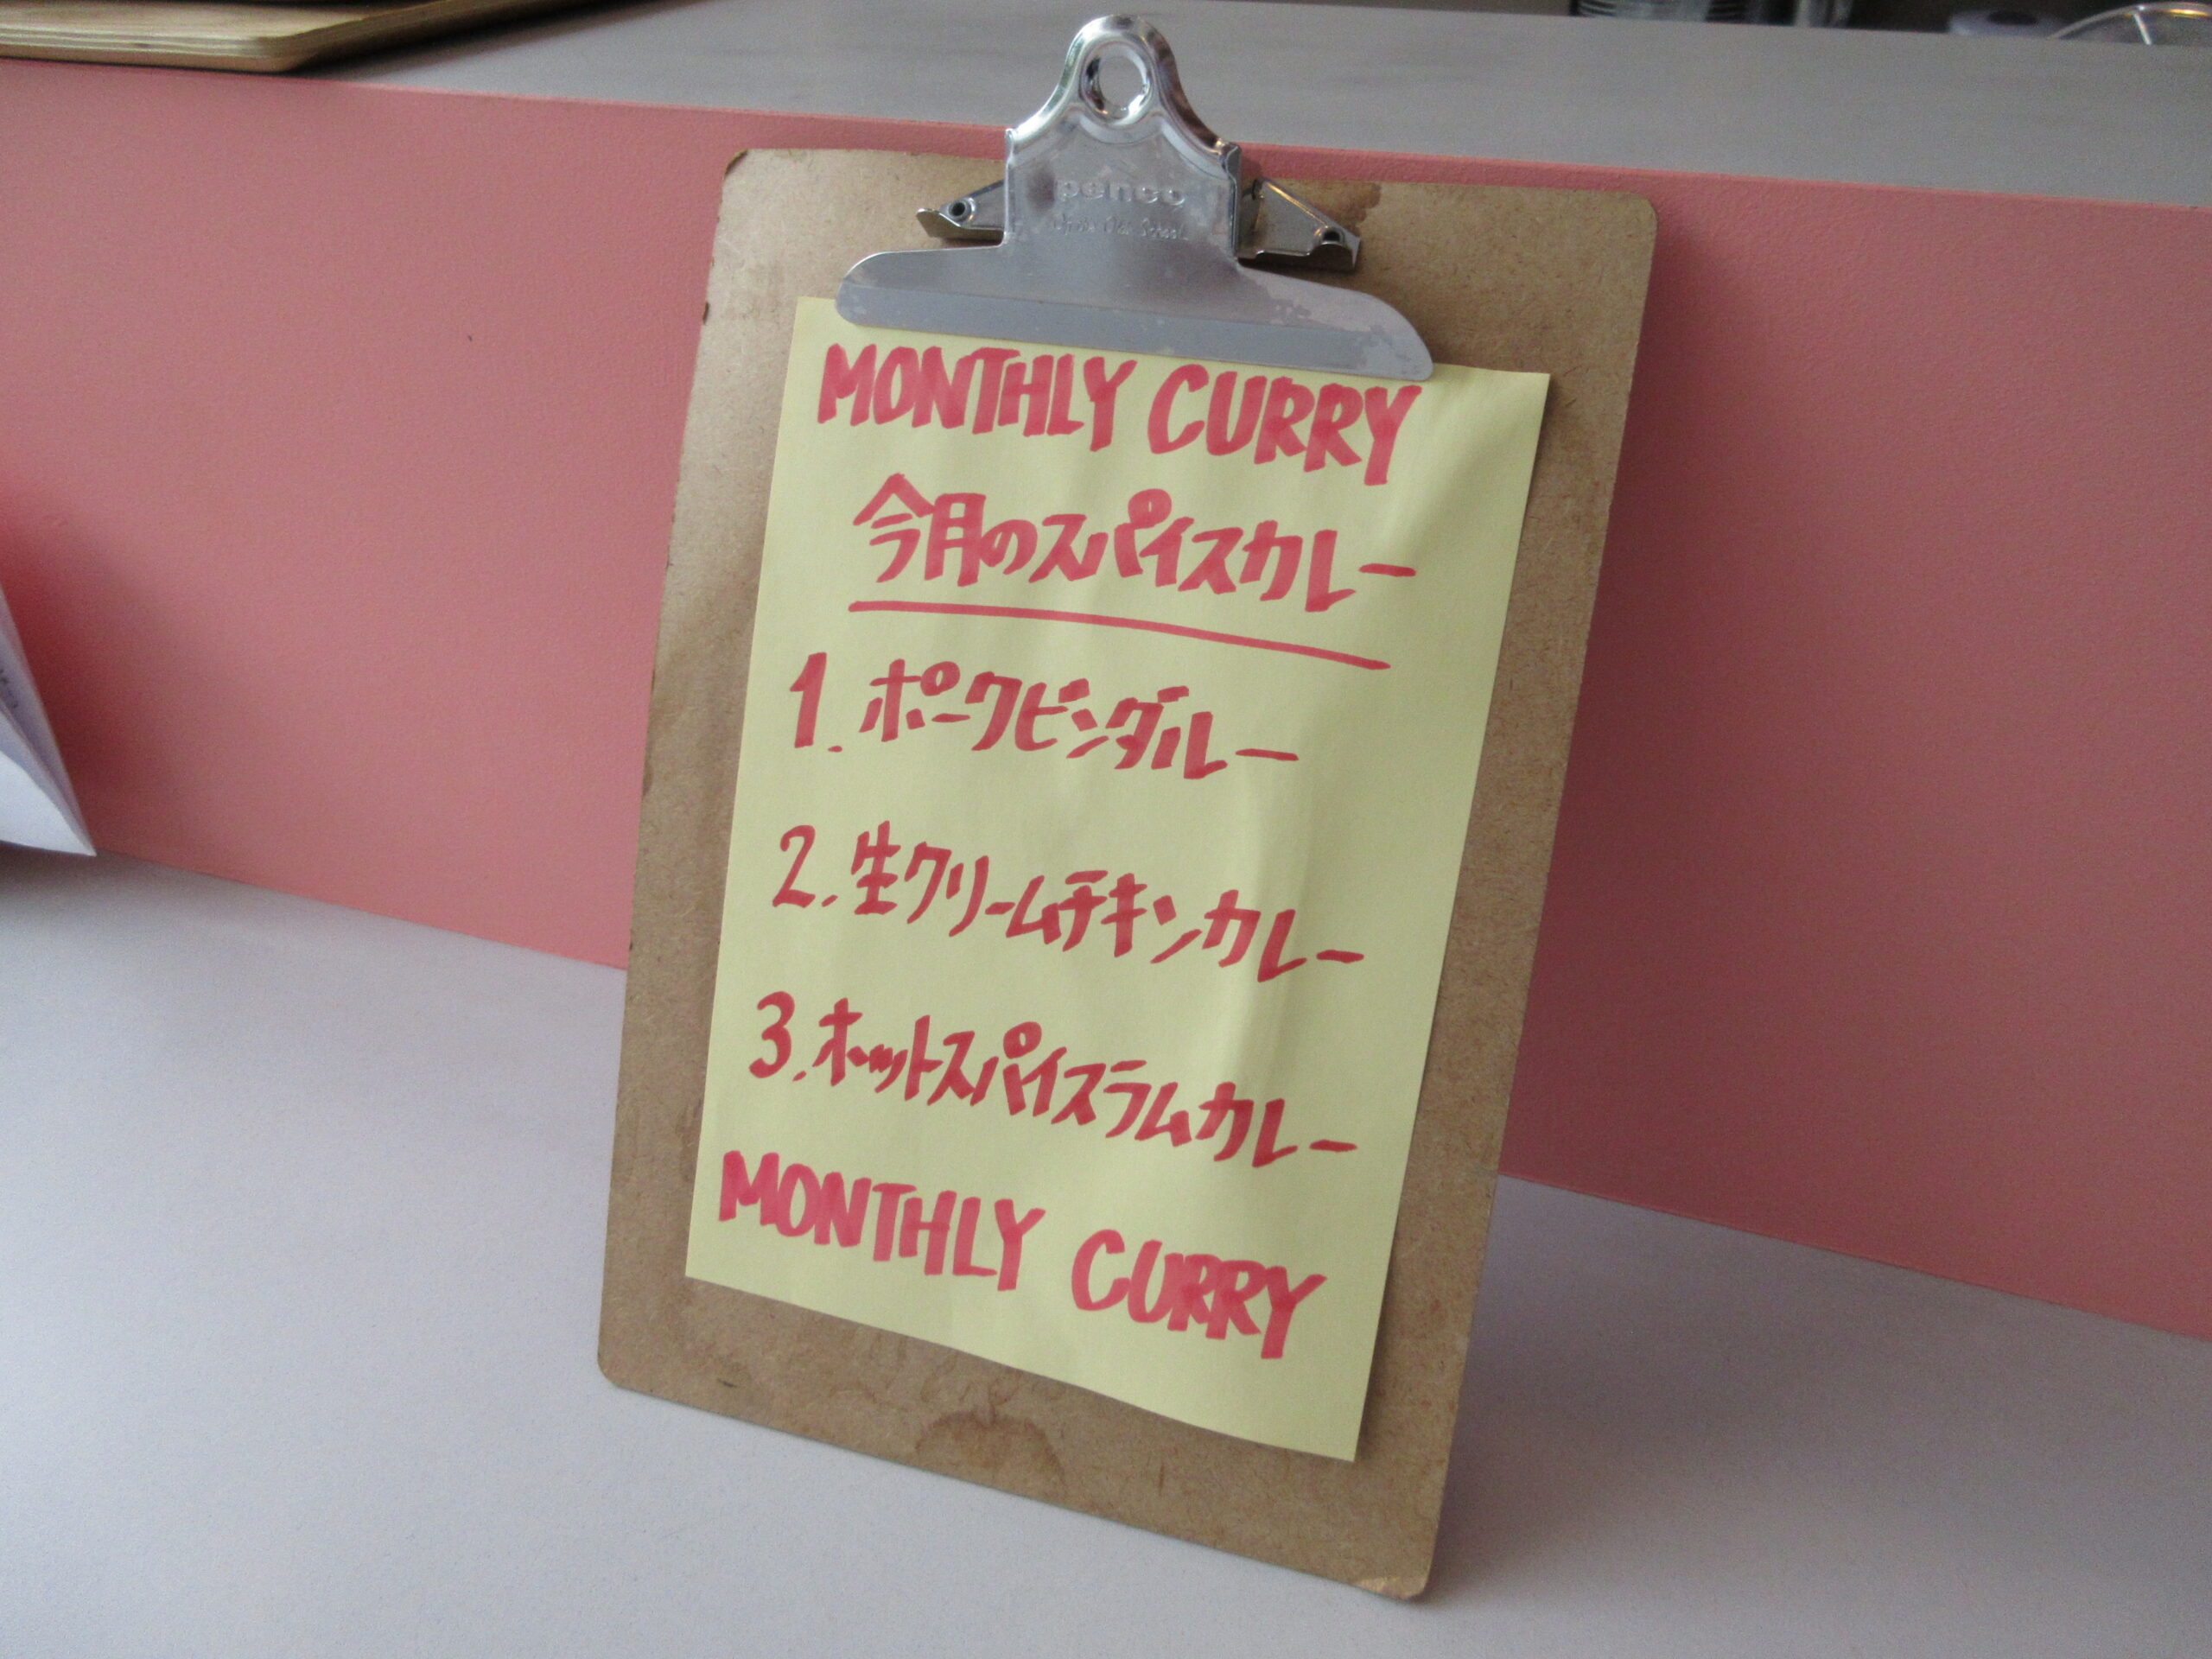 penco
MONTHLY CURRY
今月のスパイスカレー
1. ポークビンダルー
2. 生クリームチキンカレー
3. ホットスパイスラムカレー
MONTHLY CURRY